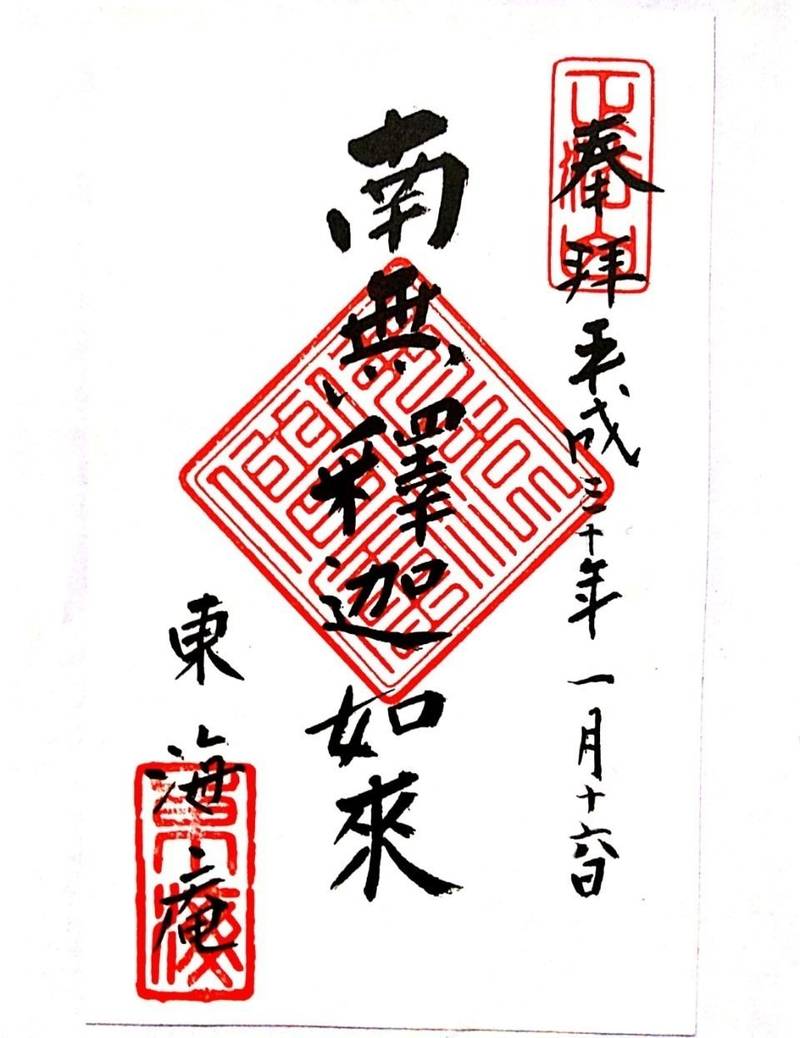 奉拝 平成三十年 一月十六日
南無釋迦如來
東海庵